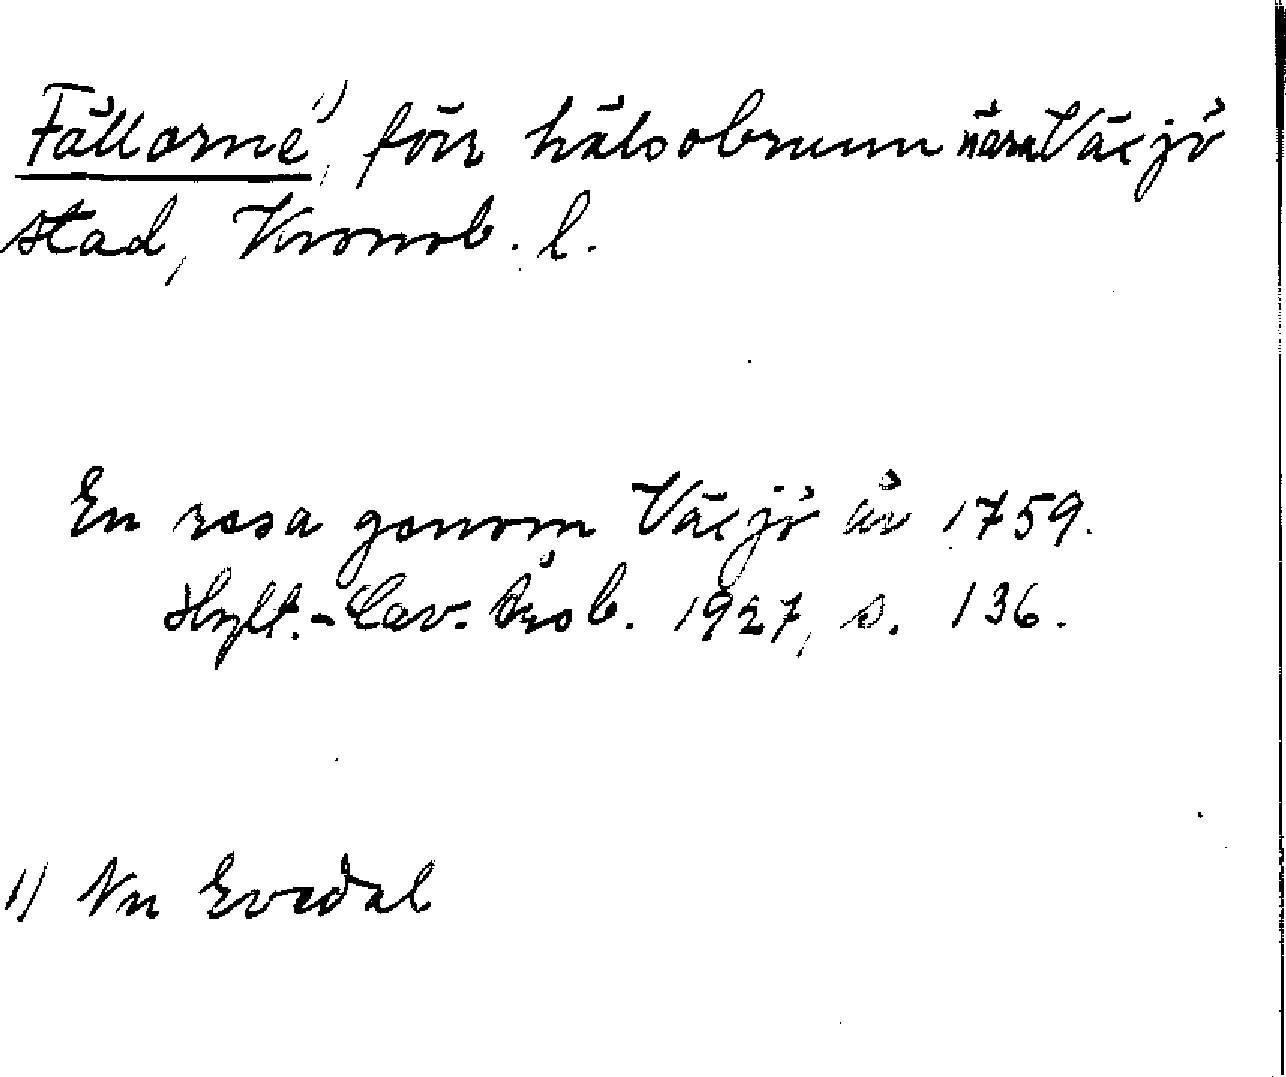 Fällorne¹⁾, förr hälsobrunn nära Växjö
stad, Kronob. l.
En resa genom Växjö år 1759.
Hylt.-Cav. Årsb. 1927, s. 136.
1) Nu Evedal